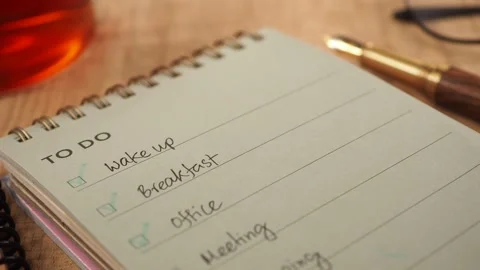 TO DO
wake up
Breakfast
Office
Meeting